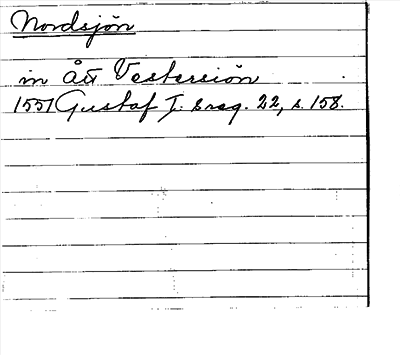 Nordsjön
in Ått Vestersiön
1551 Gustaf I. s reg. 22, s. 158.